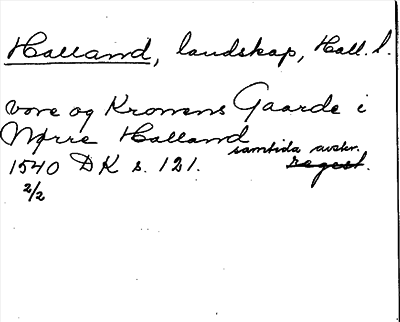 Halland, landskap, Hall. l.
vore og Kronens Gaarde i
Nørre Halland
samtida avskr.
1540 DK s. 121. regest.
2/2